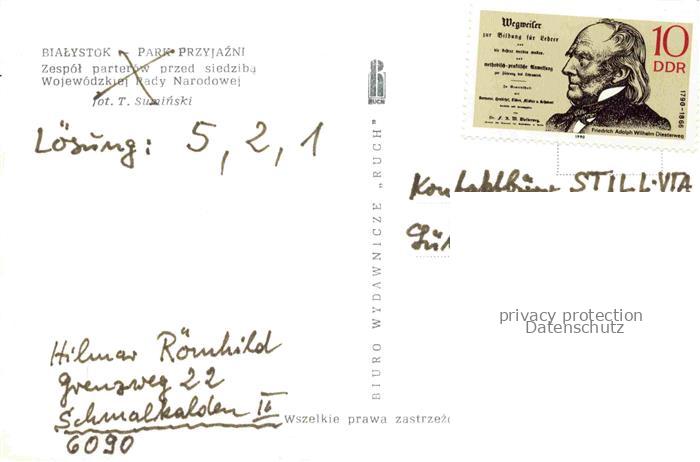 BIAŁYSTOK — PARK PRZYJAŹNI
Zespół parterów przed siedzibą
Wojewódzkiej Rady Narodowej
fot. T. Sumiński
Lösung: 5, 2, 1
Hilmar Römhild
Grenzweg 22
Schmalkalden II
6090
Wszelkie prawa zastrzeżo
RUCH
BIURO WYDAWNICZE „RUCH”
Wegweiser
zur Bildung für Lehrer
10
DDR
1790–1866
Friedrich Adolph Wilhelm Diesterweg
1990
STILL-VTA
privacy protection
Datenschutz